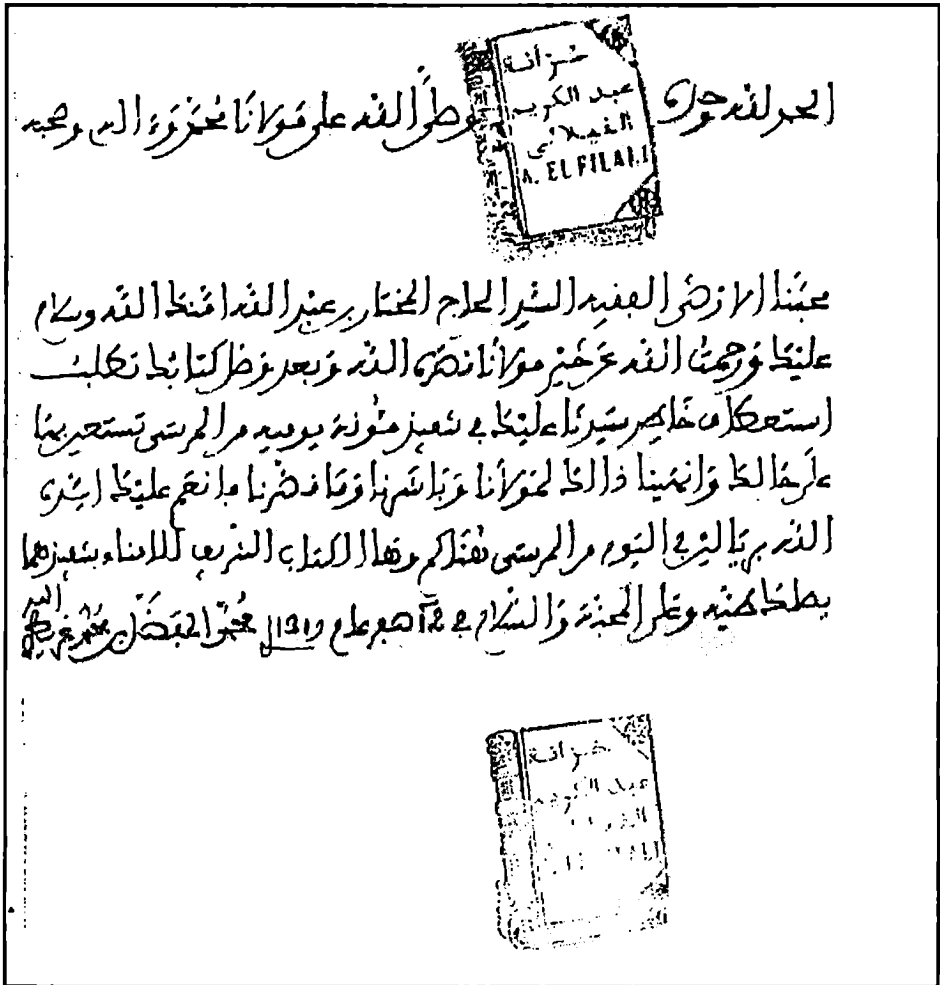 الحمد لله وحده وصلى الله على مولانا محمد وءاله وصحبه
خزانة
عبد الكريم
الفيلالي
A. EL FILALI
محبنا الارضى الفقيه السيد الحاج المختار بن عبد الله امنك الله وسلام
عليك ورحمت الله عن خير مولانا نصره الله وبعد وصل كتابك تطلب
استعطاف سيدنا عليك في تنفيذ مئونة يومية من المرسى تستعين بها
على حالك وانهينا ذالك لمولانا نصره الله وانعم عليك ايده
الله بريالين في اليوم من المرسى هناكم وها الكتاب الشريف للامناء بتنفيذهما
يصلك طيه وعلى المحبة والسلام في عام محمد المفضل بن محمد غريط
الله
خزانة
عبد الكريم